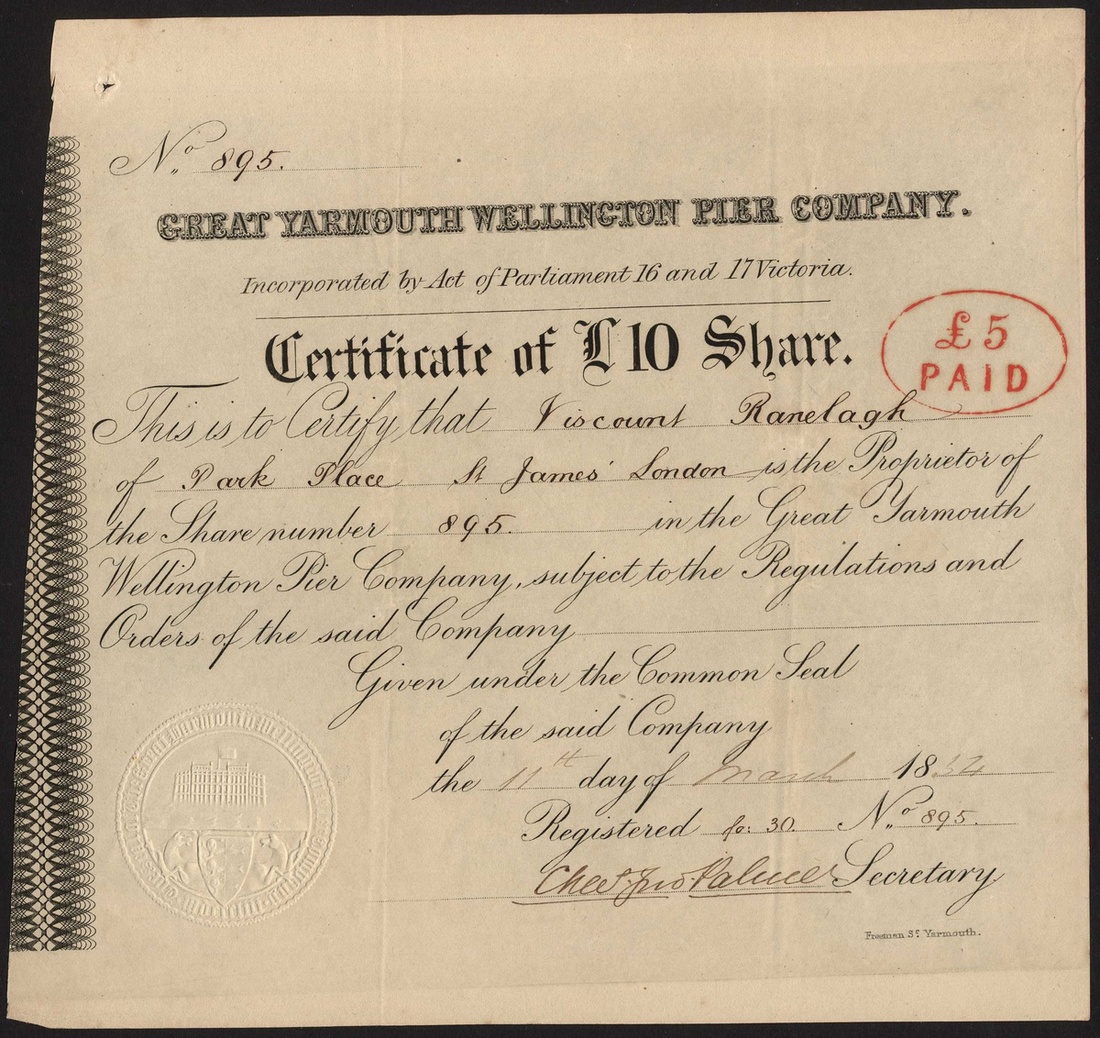 No 895.
GREAT YARMOUTH WELLINGTON PIER COMPANY.
Incorporated by Act of Parliament 16 and 17 Victoria.
Certificate of £10 Share.
£5
PAID
This is to Certify that Viscount Ranelagh
of Park Place St James' London is the Proprietor of
the Share number 895. in the Great Yarmouth
Wellington Pier Company, subject to the Regulations and
Orders of the said Company
Given under the Common Seal
of the said Company
the 11th day of March 1854
Registered fo: 30. No 895.
Chas Jno Palmer Secretary
Freeman Sc Yarmouth.